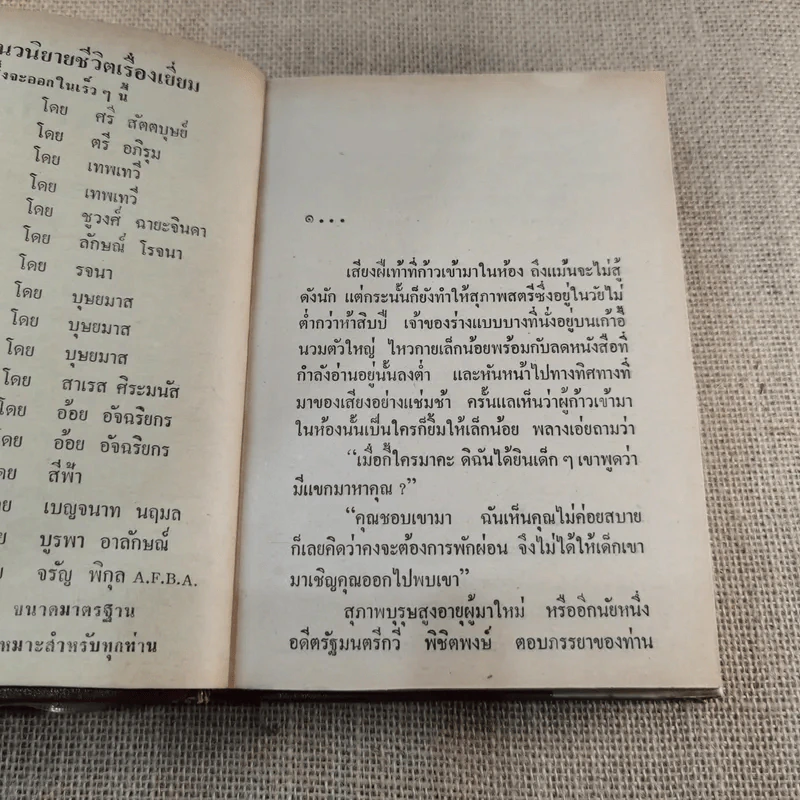 นวนิยายชีวิตเรื่องเยี่ยม
จะออกในเร็ว ๆ นี้
โดย ศรี สัตตบุษย์
โดย ตรี อภิรุม
โดย เทพเทวี
โดย เทพเทวี
โดย ชูวงศ์ ฉายะจินดา
โดย ลักษณ์ โรจนา
โดย รจนา
โดย บุษยมาส
โดย บุษยมาส
โดย บุษยมาส
โดย สาเรส ศิระมนัส
โดย อ้อย อัจฉริยกร
โดย อ้อย อัจฉริยกร
สีฟ้า
เบญจนาท นฤมล
บูรพา อาลักษณ์
จรัญ พิกุล A.F.B.A.
ขนาดมาตรฐาน
เหมาะสำหรับทุกท่าน
๑...
เสียงฝีเท้าที่ก้าวเข้ามาในห้อง ถึงแม้นจะไม่สู้
ดังนัก แต่กระนั้นก็ยังทำให้สุภาพสตรีซึ่งอยู่ในวัยไม่
ต่ำกว่าห้าสิบปี เจ้าของร่างแบบบางที่นั่งอยู่บนเก้าอี้
นวมตัวใหญ่ ไหวกายเล็กน้อยพร้อมกับลดหนังสือที่
กำลังอ่านอยู่นั้นลงต่ำ และหันหน้าไปทางทิศทางที่
มาของเสียงอย่างแช่มช้า ครั้นแลเห็นว่าผู้ก้าวเข้ามา
ในห้องนั้นเป็นใครก็ยิ้มให้เล็กน้อย พลางเอ่ยถามว่า
“เมื่อกี้ใครมาคะ ดิฉันได้ยินเด็ก ๆ เขาพูดว่า
มีแขกมาหาคุณ ?”
“คุณชอบเขามา ฉันเห็นคุณไม่ค่อยสบาย
ก็เลยคิดว่าคงจะต้องการพักผ่อน จึงไม่ได้ให้เด็กเขา
มาเชิญคุณออกไปพบเขา”
สุภาพบุรุษสูงอายุผู้มาใหม่ หรืออีกนัยหนึ่ง
อดีตรัฐมนตรีกวี พิชิตพงษ์ ตอบภรรยาของท่าน